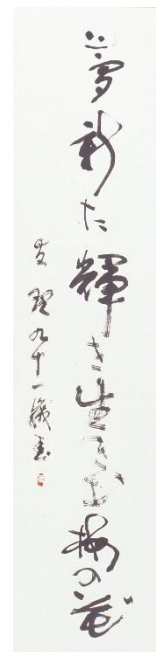 夢新た輝き生きむ梅の花
九十一歳書